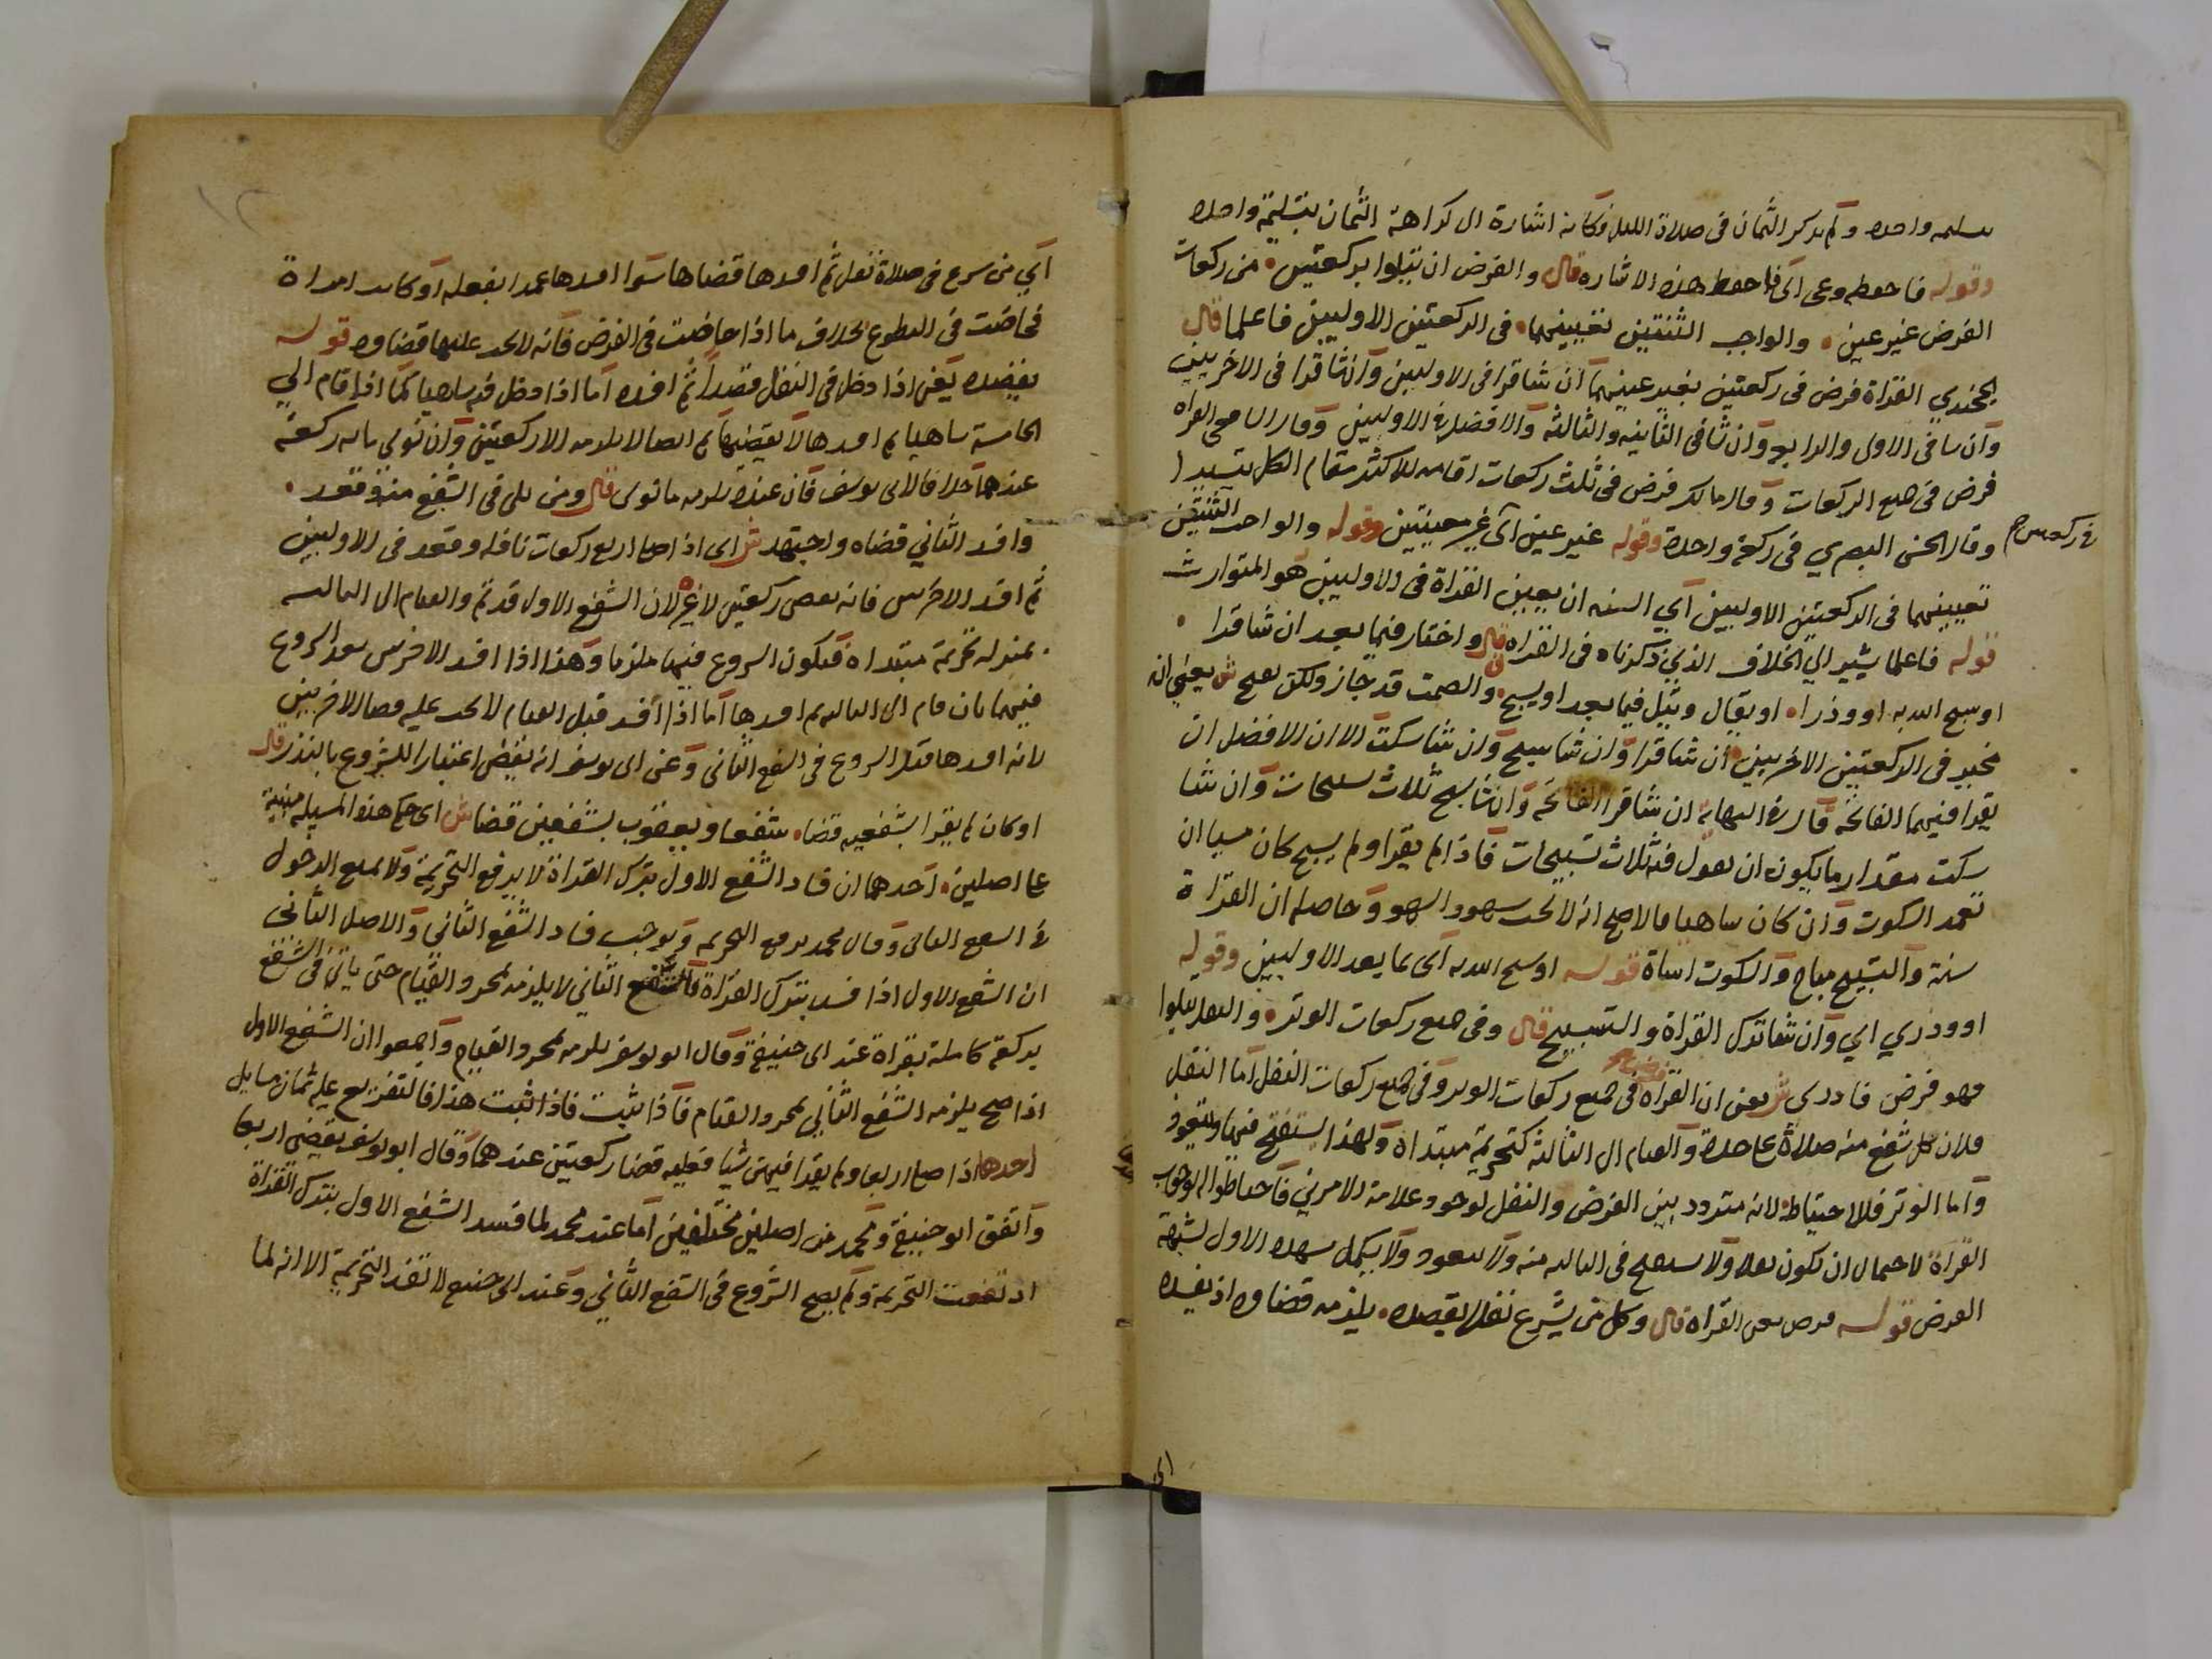 بتسليمه واحده ولم يذكر الثمان في صلاة الليل فكانه اشارة الى كراهة الثمان بتسليمة واحده
وقوله فاحفظه وعى اى فاحفظ هذه الاشاره قال والفرض ان يتلوا بركعتين من ركعات
الفرض غير عين والواجب الثنتين تعيينهما في الركعتين الاوليين فاعلما قال
الخجندي القراة فرض في ركعتين بغير عينهما ان شا قرا في الاوليين وان شا قرا في الاخريين
وان شا في الاولى والرابع وان شا في الثانيه والثالثة والافضل في الاوليين وقال الشافعي القراه
فرض في جميع الركعات وقال مالك فرض في ثلث ركعات اقامه للاكثر مقام الكل تيسيرا
وقال الحسن البصري في ركعة واحدة وقوله غير عين اى غير معينتين وقوله والواجب الثنتين
في ركعتين
تعيينهما في الركعتين الاوليين اي السنه ان يعين القراة في الاوليين هو المتوارث
قوله فاعلما يشير الي الخلاف الذي ذكرناه في القراه قال واختار فيما بعد ان شا قرا
او سبح الله به او وذرا او يقال وقيل فيما بعد او يسبح والصمت قد جاز ولكن يصح ش يعني انه
مخير في الركعتين الاخريين ان شا قرا وان شا سبح وان شا سكت الا ان الافضل ان
يقرا فيهما الفاتحة قال في النهاية ان شا قرا الفاتحه وان شا سبح ثلاث تسبيحات وان شا
سكت مقدار ما يكون ان يقول فيه ثلاث تسبيحات فاذا لم يقرا ولم يسبح كان مسيا ان
تعمد السكوت وان كان ساهيا فالاصح انه لا يجب سهود السهو وحاصله ان القراة
سنة والتسبيح مباح والسكوت اساة قوله او سبح الله به اى بما بعد الاوليين وقوله
او وذري اي وان شا ترك القراة والتسبيح قال وفي جميع ركعات الوتر والنفل يتلوا
فهو فرض فادرى ش يعنى ان القراه فرض في جميع ركعات الوتر وفي جميع ركعات النفل اما النفل
فلان كل شفع منه صلاة على حدة والقيام الى الثالثة كتحريمة مبتداه ولهذا يستفتح فيها ويتعوذ
واما الوتر فللاحتياط لانه متردد بين الفرض والنفل لوجود علامة الامرين فاحتاطوا لوجوب
القراة لاحتمال ان يكون نفلا ولا يستفتح في الثالثه منه ولا يتعوذ ولا يكمل تشهده الاول لشبهة
الفرض قوله فرض يعنى القراه قال وكل من يشرع نفلا يقصده يلزمه قضاوه اذ يفسده
اى
اي من شرع في صلاة نفل ثم افسدها قضاها سوا افسدها عمدا بفعله او كانت امراة
فحاضت في التطوع بخلاف ما اذا حاضت في الفرض فانه لا يجب عليها قضاوه قوله
يقصده يعنى اذا دخل في النفل قصدا ثم افسده اما اذا دخل فيه ساهيا كما اذا قام الي
الخامسة ساهيا ثم افسدها لا يقضيها ثم ايضا لا يلزمه الا ركعتين وان نوى مايه ركعة
عندهما خلافا لابى يوسف فان عنده يلزمه ما نوى قال ومن بلى فى الشفع منه وقعد
وافسد الثاني قضاه واجتهد ش اى اذا صلى اربع ركعات نافله وقعد فى الاوليين
ثم افسد الاخرىين فانه يقضى ركعتين لا غير لان الشفع الاول قد تم والقيام الى الثالثه
بمنزله تحريمة مبتداه فيكون الشروع فيها ملزما وهذا اذا افسد الاخرىين بعد الشروع
فيهما بان قام الى الثالثه ثم افسدها اما اذا افسد قبل القيام لا يجب عليه قضا الاخريين
لانه افسدها قبل الشروع في الشفع الثاني وعن ابى يوسف انه يقضى اعتبارا للشروع بالنذر قال
او كان لم يقرا بشفعيه قضا شفعا ويعقوب بشفعين قضا ش اى حكم هذه المسيله مبنية
على اصلين احدهما ان فساد الشفع الاول بترك القراة لا يرفع التحريمة ولا يمنع الدخول
في الشفع الثانى وقال محمد يرفع التحريمه ويوجب فساد الشفع الثاني والاصل الثاني
ان الشفع الاول اذا فسد بترك القراة فالشفع الثاني لا يلزمه بمجرد القيام حتى ياتى في الشفع
بركعة كاملة بقراة عند ابى حنيفة وقال ابو يوسف يلزمه بمجرد القيام واجمعوا ان الشفع الاول
اذا صح يلزمه الشفع الثاني بمجرد القيام فاذا ثبت هذا فالتفريع عليه ثمان مسايل
احدها اذا صلى اربعا ولم يقرا فيهن شيا فعليه قضا ركعتين عندهما وقال ابو يوسف يقضى اربعا
واتفق ابو حنيفة ومحمد من اصلين مختلفين اما عند محمد لما فسد الشفع الاول بترك القراة
ارتفعت التحريمة ولم يصح الشروع في الشفع الثاني وعند ابى حنيفة لا تفسد التحريمة الا انه لما